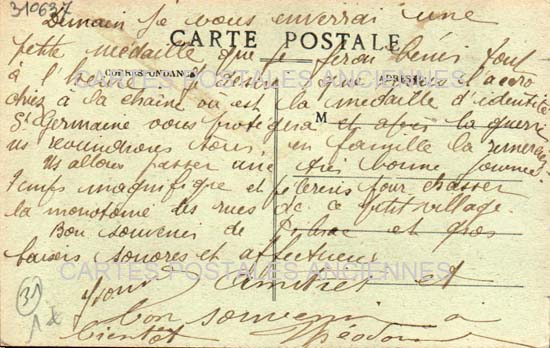 310637
Demain je vous enverrai une
CARTE POSTALE
petite médaille que je ferai bénir tout
CORRESPONDANCE
ADRESSE
à l'heure je désire que vous l'accro
CARTES POSTALES ANCIENNES
chiez à la chaine ou est la médaille d'identité
M
St Germaine vous protégera et après la guerre
us reviendrons tous en famille la remercier
Us allons passer une très bonne journée
Temps magnifique et pour chasser
la monotonie les rues de ce petit village.
Bon souvenir de Pibrac et gros
baisers sonores et affectueux
CARTES POSTALES ANCIENNES
31
Amitiés et
bon souvenir à
bientôt Théodore